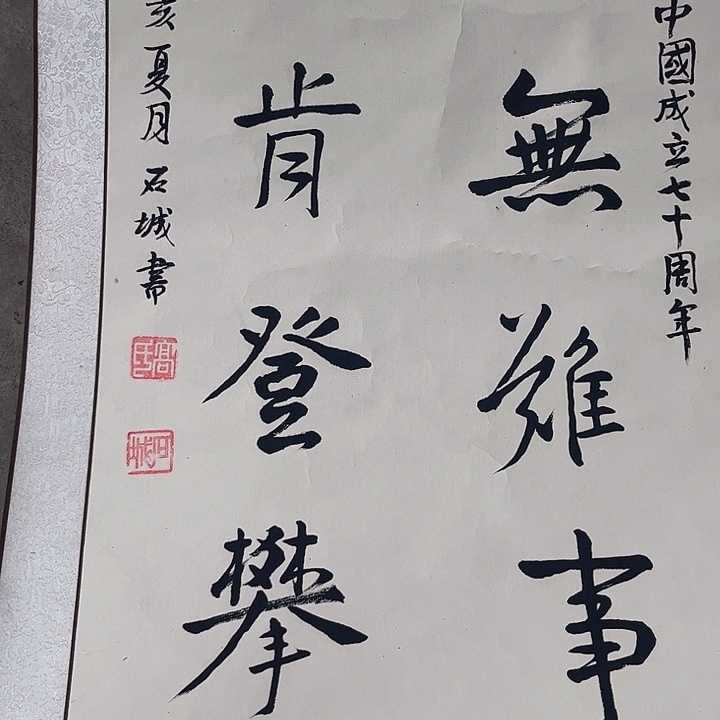 中國成立七十周年
無難事
肯登攀
亥夏月石城書